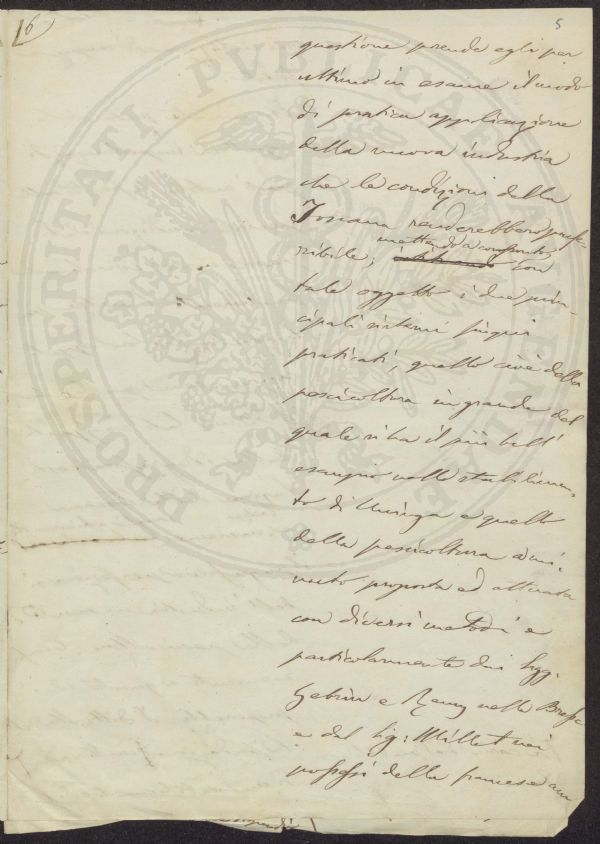 6
5
questione prende egli per
ultimo in esame il modo
di pratica applicazione
della nuova industria
che le condizioni della
Toscana renderebbero prefe-
mettendo a confronto
ribile; con
tale oggetto i due prin-
cipali sistemi finqui
praticati, quello cioè della
pescicoltura in grande del
quale si ha il più bell'
esempio nello stabilimen-
to di Uninga e quello
della pescicoltura a mi-
nuto proposta ed attivata
con diversi metodi e
particolarmente dai Sigg.
Gehin e Remy nella Bresse
e dal Sig: Millet nei
possessi della francese am
PROSPERITATI PVBLICAE AVGENDAE